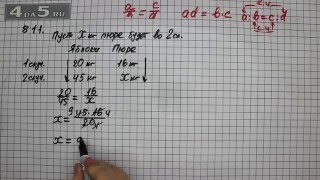 4DA5.RU
a/b = c/d   ad = b·c   a:b=c:d
811. Пусть X кг пюре будет во 2сл.
Яблоки Пюре
1случ. 20 кг 16 кг
2случ. 45 кг X кг
20/45 = 16/x
x =
x = 9